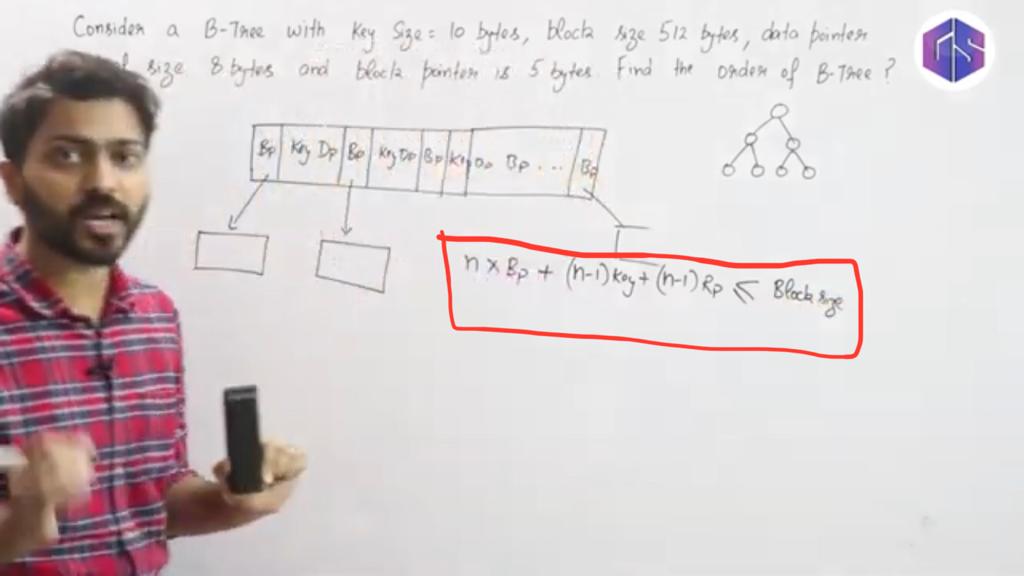 Consider a B-Tree with key size = 10 bytes, block size 512 bytes, data pointer
size 8 bytes and block pointer is 5 bytes. Find the order of B-Tree ?
Bp Key Dp Bp Key Dp Bp Key Dp Bp ... Bp
n × Bp + (n-1) Key + (n-1) Rp ≤ Block size